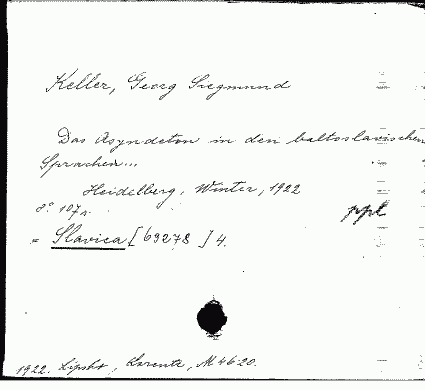 Keller, Georg Siegmund
Das Asyndeton in den baltoslavischen
Sprachen...
Heidelberg, Winter, 1922
8° 107 s.
ppl
= Slavica [69278] 4.
1922. Lipsko, Lorentz, M 46.20.